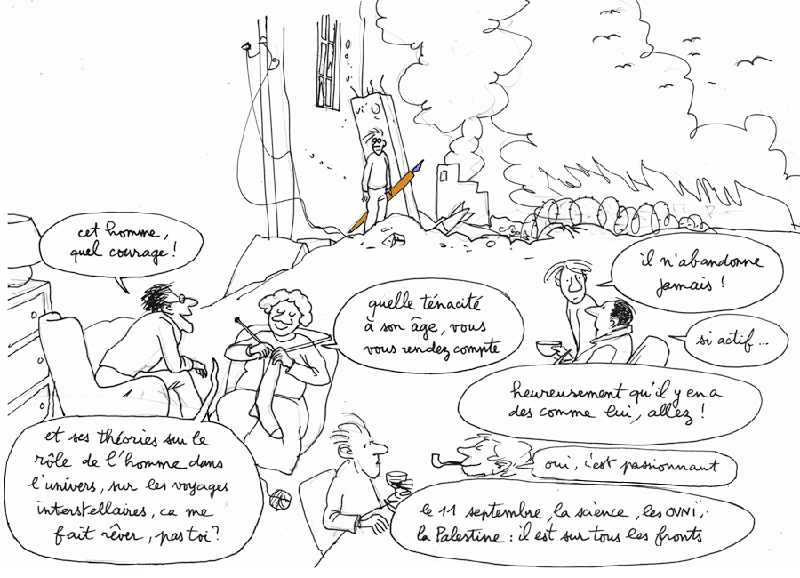 cet homme,
quel courage !
quelle ténacité
à son âge, vous
vous rendez compte
il n'abandonne
jamais !
si actif...
heureusement qu'il y en a
des comme lui, allez !
et ses théories sur le
rôle de l'homme dans
l'univers, sur les voyages
interstellaires, ça me
fait rêver, pas toi ?
oui, c'est passionnant
le 11 septembre, la science, les OVNI,
la Palestine : il est sur tous les fronts